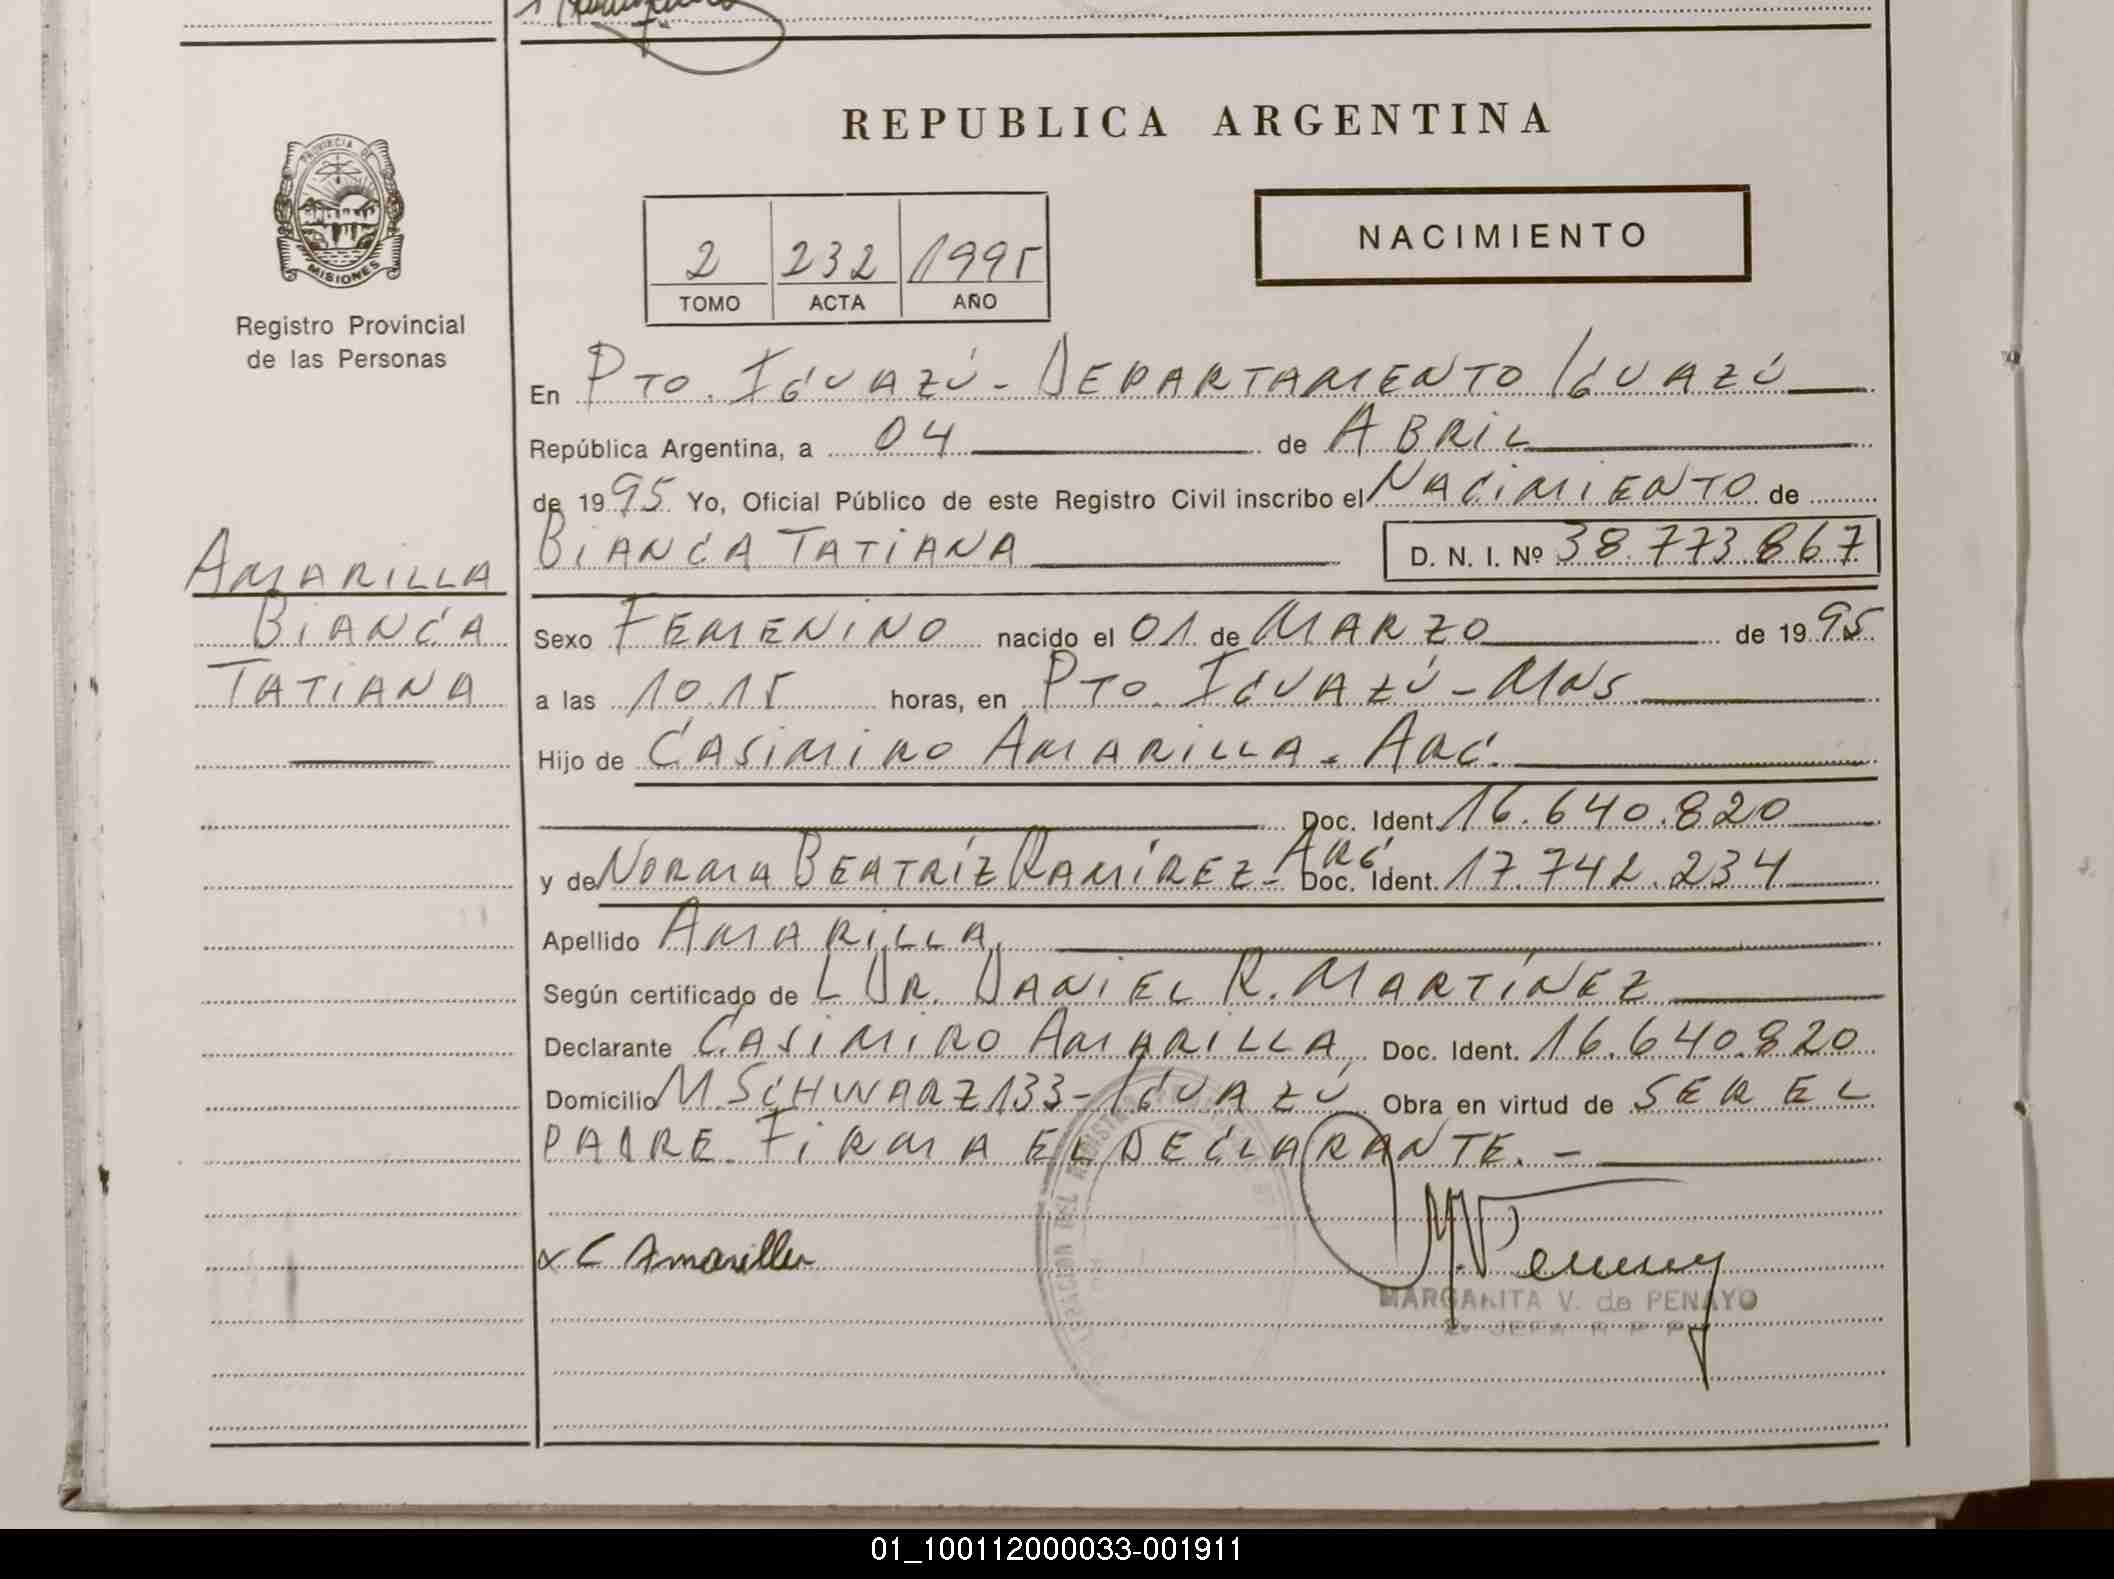 REPUBLICA ARGENTINA
PROVINCIA DE
MISIONES
Registro Provincial
de las Personas
2 232 1995
TOMO ACTA AÑO
NACIMIENTO
En PTO. IGUAZÚ - DEPARTAMENTO IGUAZÚ
República Argentina, a 04 de ABRIL
de 1995 Yo, Oficial Público de este Registro Civil inscribo el NACIMIENTO de
BIANCA TATIANA D. N. I. Nº 38.773.867
AMARILLA
BIANCA
TATIANA
Sexo FEMENINO nacido el 01 de MARZO de 1995
a las 10.15 horas, en PTO. IGUAZÚ - MNS
Hijo de CASIMIRO AMARILLA. ARG.
Doc. Ident. 16.640.820
y de NORMA BEATRÍZ RAMÍREZ - ARG. Doc. Ident. 17.742.234
Apellido AMARILLA
Según certificado de L DR. DANIEL R. MARTÍNEZ
Declarante CASIMIRO AMARILLA Doc. Ident. 16.640.820
Domicilio M. SCHWARZ 133 - IGUAZÚ Obra en virtud de SER EL
PADRE. FIRMA EL DECLARANTE. -
C Amarilla
MARGARITA V. de PENAYO
JEFA R P P
01_100112000033-001911